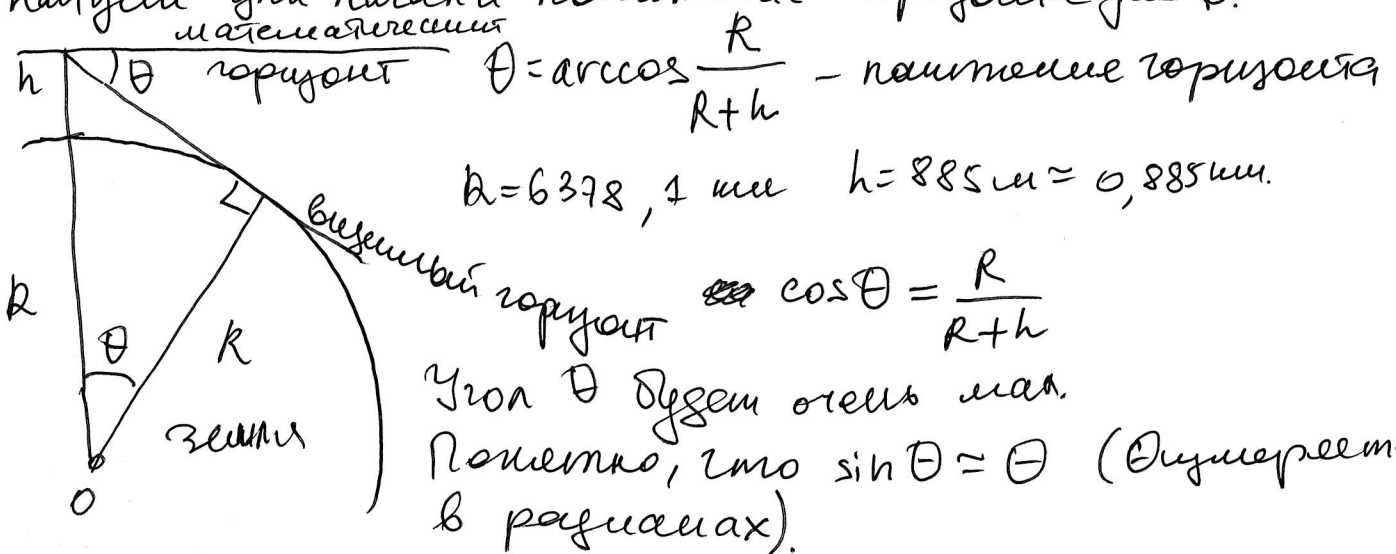 найдем для начала понижение горизонта
математический
горизонт
h θ
θ = arccos R/(R+h) – понижение горизонта
R = 6378,1 км h = 885 м ≃ 0,885 км.
видимый горизонт
cosθ = R/(R+h)
R θ R
Земля
O
Угол θ будет очень мал.
Понятно, что sin θ ≃ θ (θ измеряем
в радианах).